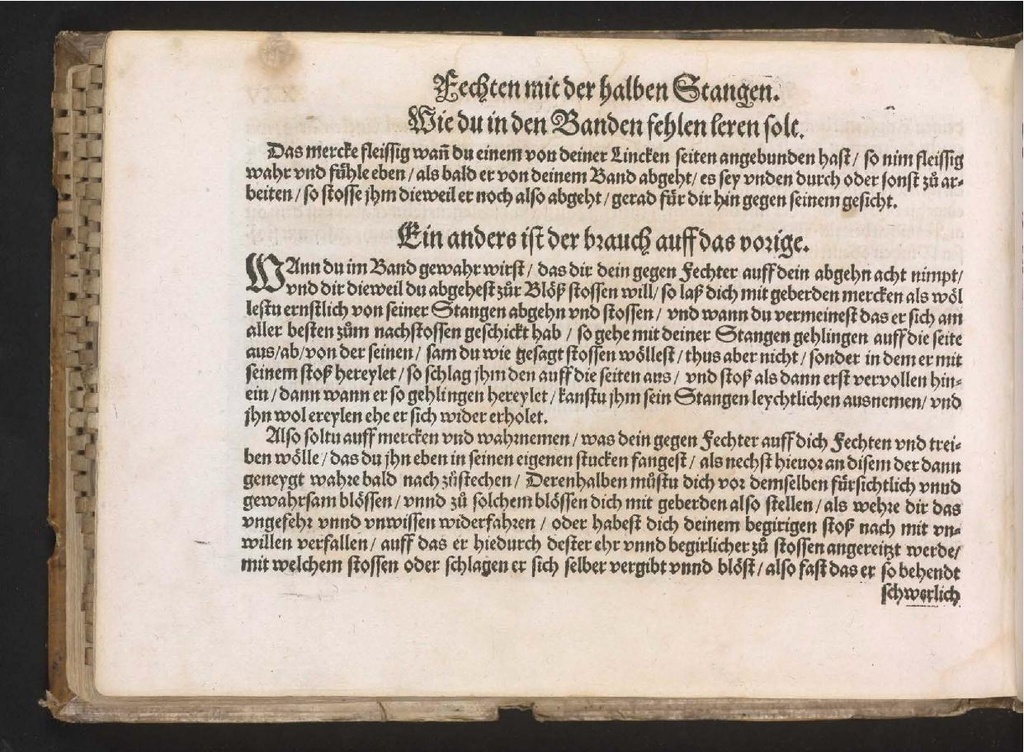 Fechten mit der halben Stangen.
Wie du in den Banden fehlen leren solt.
Das mercke fleissig wañ du einem von deiner Lincken seiten angebunden hast / so nim fleissig
wahr vnd fühle eben / als bald er von deinem Band abgeht / es sey vnden durch oder sonst zů ar-
beiten / so stosse jhm dieweil er noch also abgeht / gerad für dir hin gegen seinem gesicht.
Ein anders ist der brauch auff das vorige.
WAnn du im Band gewahr wirst / das dir dein gegen Fechter auff dein abgehn acht nimpt /
vnd dir dieweil du abgehest zůr Blöß stossen will / so laß dich mit geberden mercken als wöl
lestu ernstlich von seiner Stangen abgehn vnd stossen / vnd wann du vermeinest das er sich am
aller besten zům nachstossen geschickt hab / so gehe mit deiner Stangen gehlingen auff die seite
aus / ab / von der seinen / sam du wie gesagt stossen wöllest / thus aber nicht / sonder in dem er mit
seinem stoß hereylet / so schlag jhm den auff die seiten aus / vnd stoß als dann erst vervollen hin-
ein / dann wann er so gehlingen hereylet / kanstu jhm sein Stangen leychtlichen ausnemen / vnd
jhn wol ereylen ehe er sich wider erholet.
Also soltu auff mercken vnd wahrnemen / was dein gegen Fechter auff dich Fechten vnd trei-
ben wölle / das du jhn eben in seinen eigenen stucken fangest / als nechst hievor an disem der dann
geneygt wahre bald nach zůstechen / Derenhalben můstu dich vor demselben fürsichtlich vnnd
gewahrsam blössen / vnnd zů solchem blössen dich mit geberden also stellen / als wehre dir das
vngefehr vnnd vnwissen widerfahren / oder habest dich deinem begirigen stoß nach mit vn-
willen verfallen / auff das er hiedurch dester ehr vnnd begirlicher zů stossen angereitzt werde /
mit welchem stossen oder schlagen er sich selber vergibt vnnd blöst / also fast das er so behendt
schwerlich